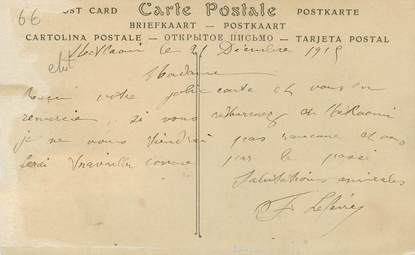 66
POST CARD Carte Postale POSTKARTE
BRIEFKAART — POSTKAART
CARTOLINA POSTALE — ОТКРЫТОЕ ПИСЬМО — TARJETA POSTAL
le 21 Décembre 1915
Madame
votre jolie carte et vous en
remercie, si vous retournez
je ne vous tiendrai pas rancune et vous
serai comme par le passé
Salutations amicales
F.